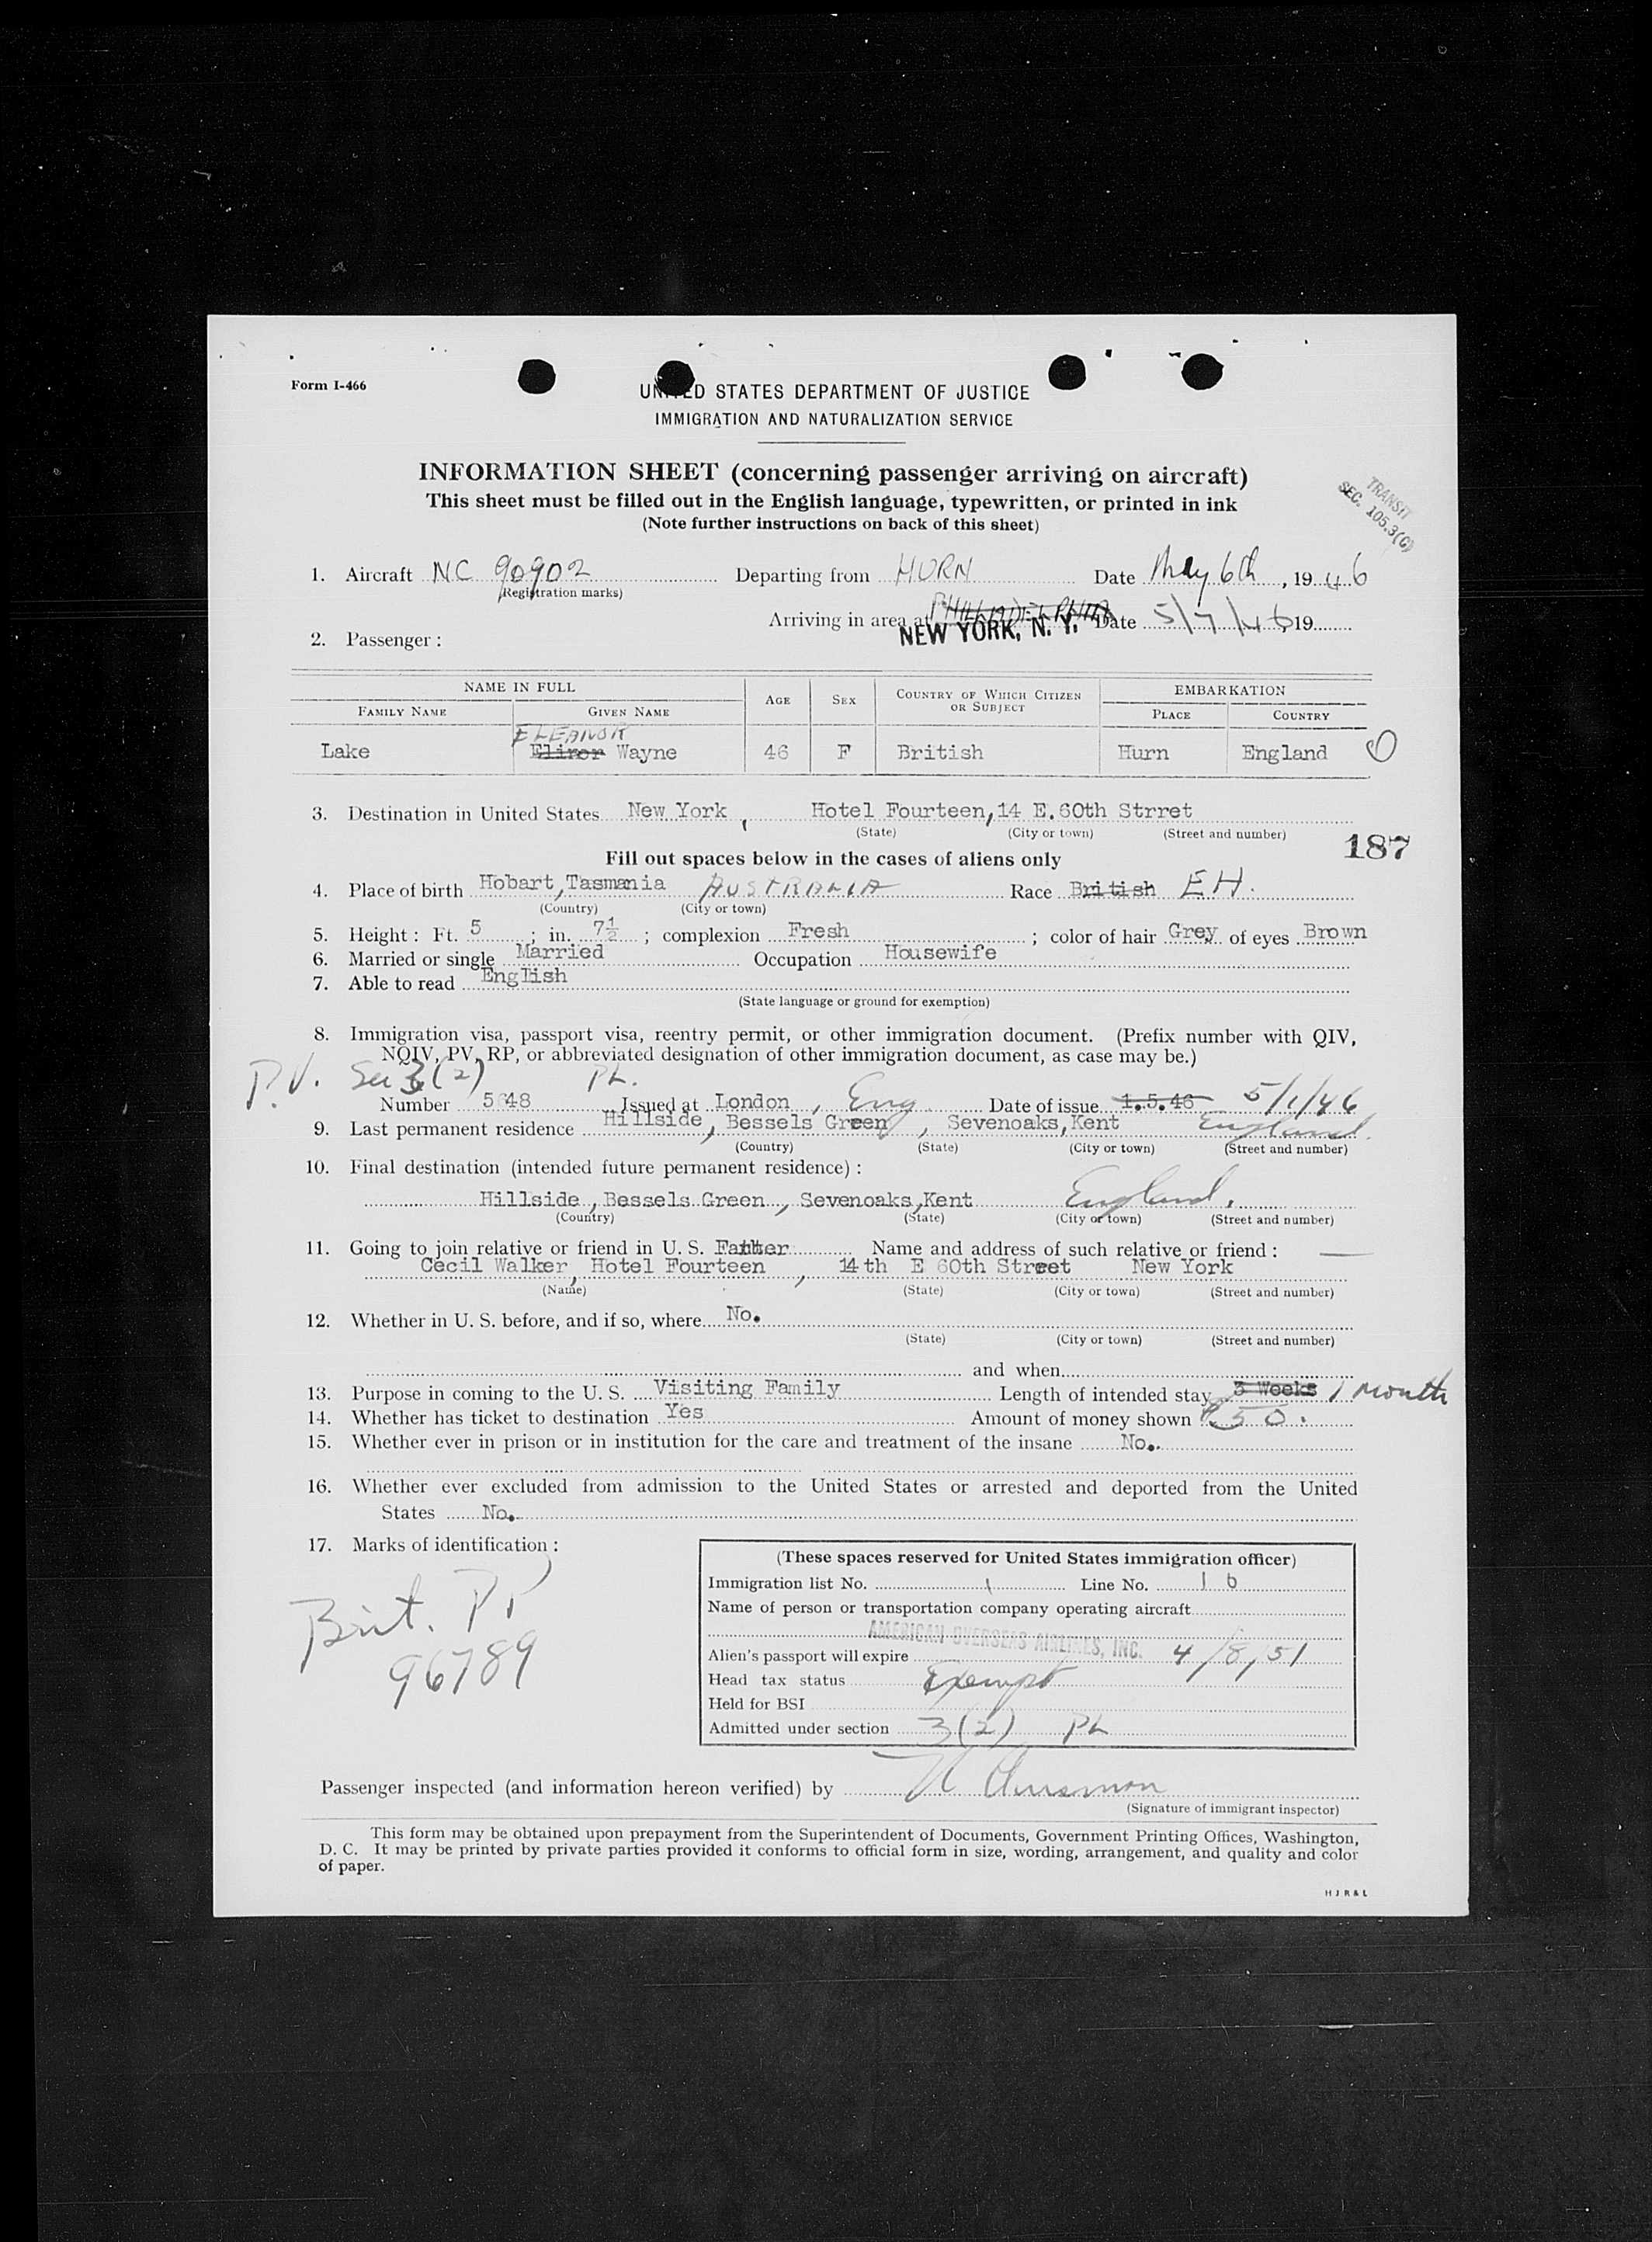 Form I-466
UNITED STATES DEPARTMENT OF JUSTICE
IMMIGRATION AND NATURALIZATION SERVICE
INFORMATION SHEET (concerning passenger arriving on aircraft)
This sheet must be filled out in the English language, typewritten, or printed in ink
(Note further instructions on back of this sheet)
TRANSIT
SEC. 105.3(G)
1. Aircraft NC 90902 Departing from HURN Date May 6th, 1946
(Registration marks)
PHILADELPHIA
Arriving in area at NEW YORK, N. Y. Date 5/7/46 19
2. Passenger :
NAME IN FULL AGE SEX COUNTRY OF WHICH CITIZEN OR SUBJECT EMBARKATION
FAMILY NAME GIVEN NAME PLACE COUNTRY
ELEANOR
Lake Elinor Wayne 46 F British Hurn England
3. Destination in United States New York, Hotel Fourteen, 14 E. 60th Strret
(State) (City or town) (Street and number)
187
Fill out spaces below in the cases of aliens only
4. Place of birth Hobart, Tasmania AUSTRALIA Race British EH.
(Country) (City or town)
5. Height : Ft. 5 ; in. 7½ ; complexion Fresh ; color of hair Grey of eyes Brown
6. Married or single Married Occupation Housewife
7. Able to read English
(State language or ground for exemption)
8. Immigration visa, passport visa, reentry permit, or other immigration document. (Prefix number with QIV,
NQIV, PV, RP, or abbreviated designation of other immigration document, as case may be.)
P.V. Sec 3(2) PL.
Number 5648 Issued at London, Eng Date of issue 1.5.46 5/1/46
9. Last permanent residence Hillside, Bessels Green, Sevenoaks, Kent England.
(Country) (State) (City or town) (Street and number)
10. Final destination (intended future permanent residence) :
Hillside, Bessels Green, Sevenoaks, Kent England.
(Country) (State) (City or town) (Street and number)
11. Going to join relative or friend in U. S. Father Name and address of such relative or friend :
Cecil Walker, Hotel Fourteen, 14th E 60th Street New York
(Name) (State) (City or town) (Street and number)
12. Whether in U. S. before, and if so, where No.
(State) (City or town) (Street and number)
and when
13. Purpose in coming to the U. S. Visiting Family Length of intended stay 3 Weeks 1 Month
14. Whether has ticket to destination Yes Amount of money shown $50.
15. Whether ever in prison or in institution for the care and treatment of the insane No.
16. Whether ever excluded from admission to the United States or arrested and deported from the United
States No.
17. Marks of identification :
Brit. PP
96789
(These spaces reserved for United States immigration officer)
Immigration list No. 1 Line No. 16
Name of person or transportation company operating aircraft
AMERICAN OVERSEAS AIRLINES, INC.
Alien's passport will expire 4/8/51
Head tax status Exempt
Held for BSI
Admitted under section 3(2) PL
Passenger inspected (and information hereon verified) by
(Signature of immigrant inspector)
This form may be obtained upon prepayment from the Superintendent of Documents, Government Printing Offices, Washington,
D. C. It may be printed by private parties provided it conforms to official form in size, wording, arrangement, and quality and color
of paper.
H J R & L